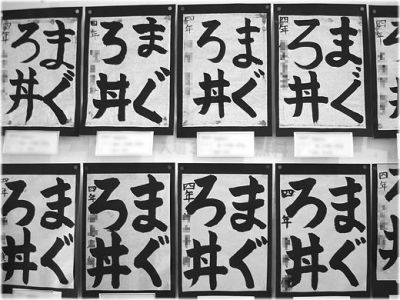 まぐ
ろ丼
四年
まぐ
ろ丼
四年
まぐ
ろ丼
四年
まぐ
ろ丼
四年
まぐ
ろ丼
四年
まぐ
ろ丼
四年
まぐ
ろ丼
四年
まぐ
ろ丼
四年